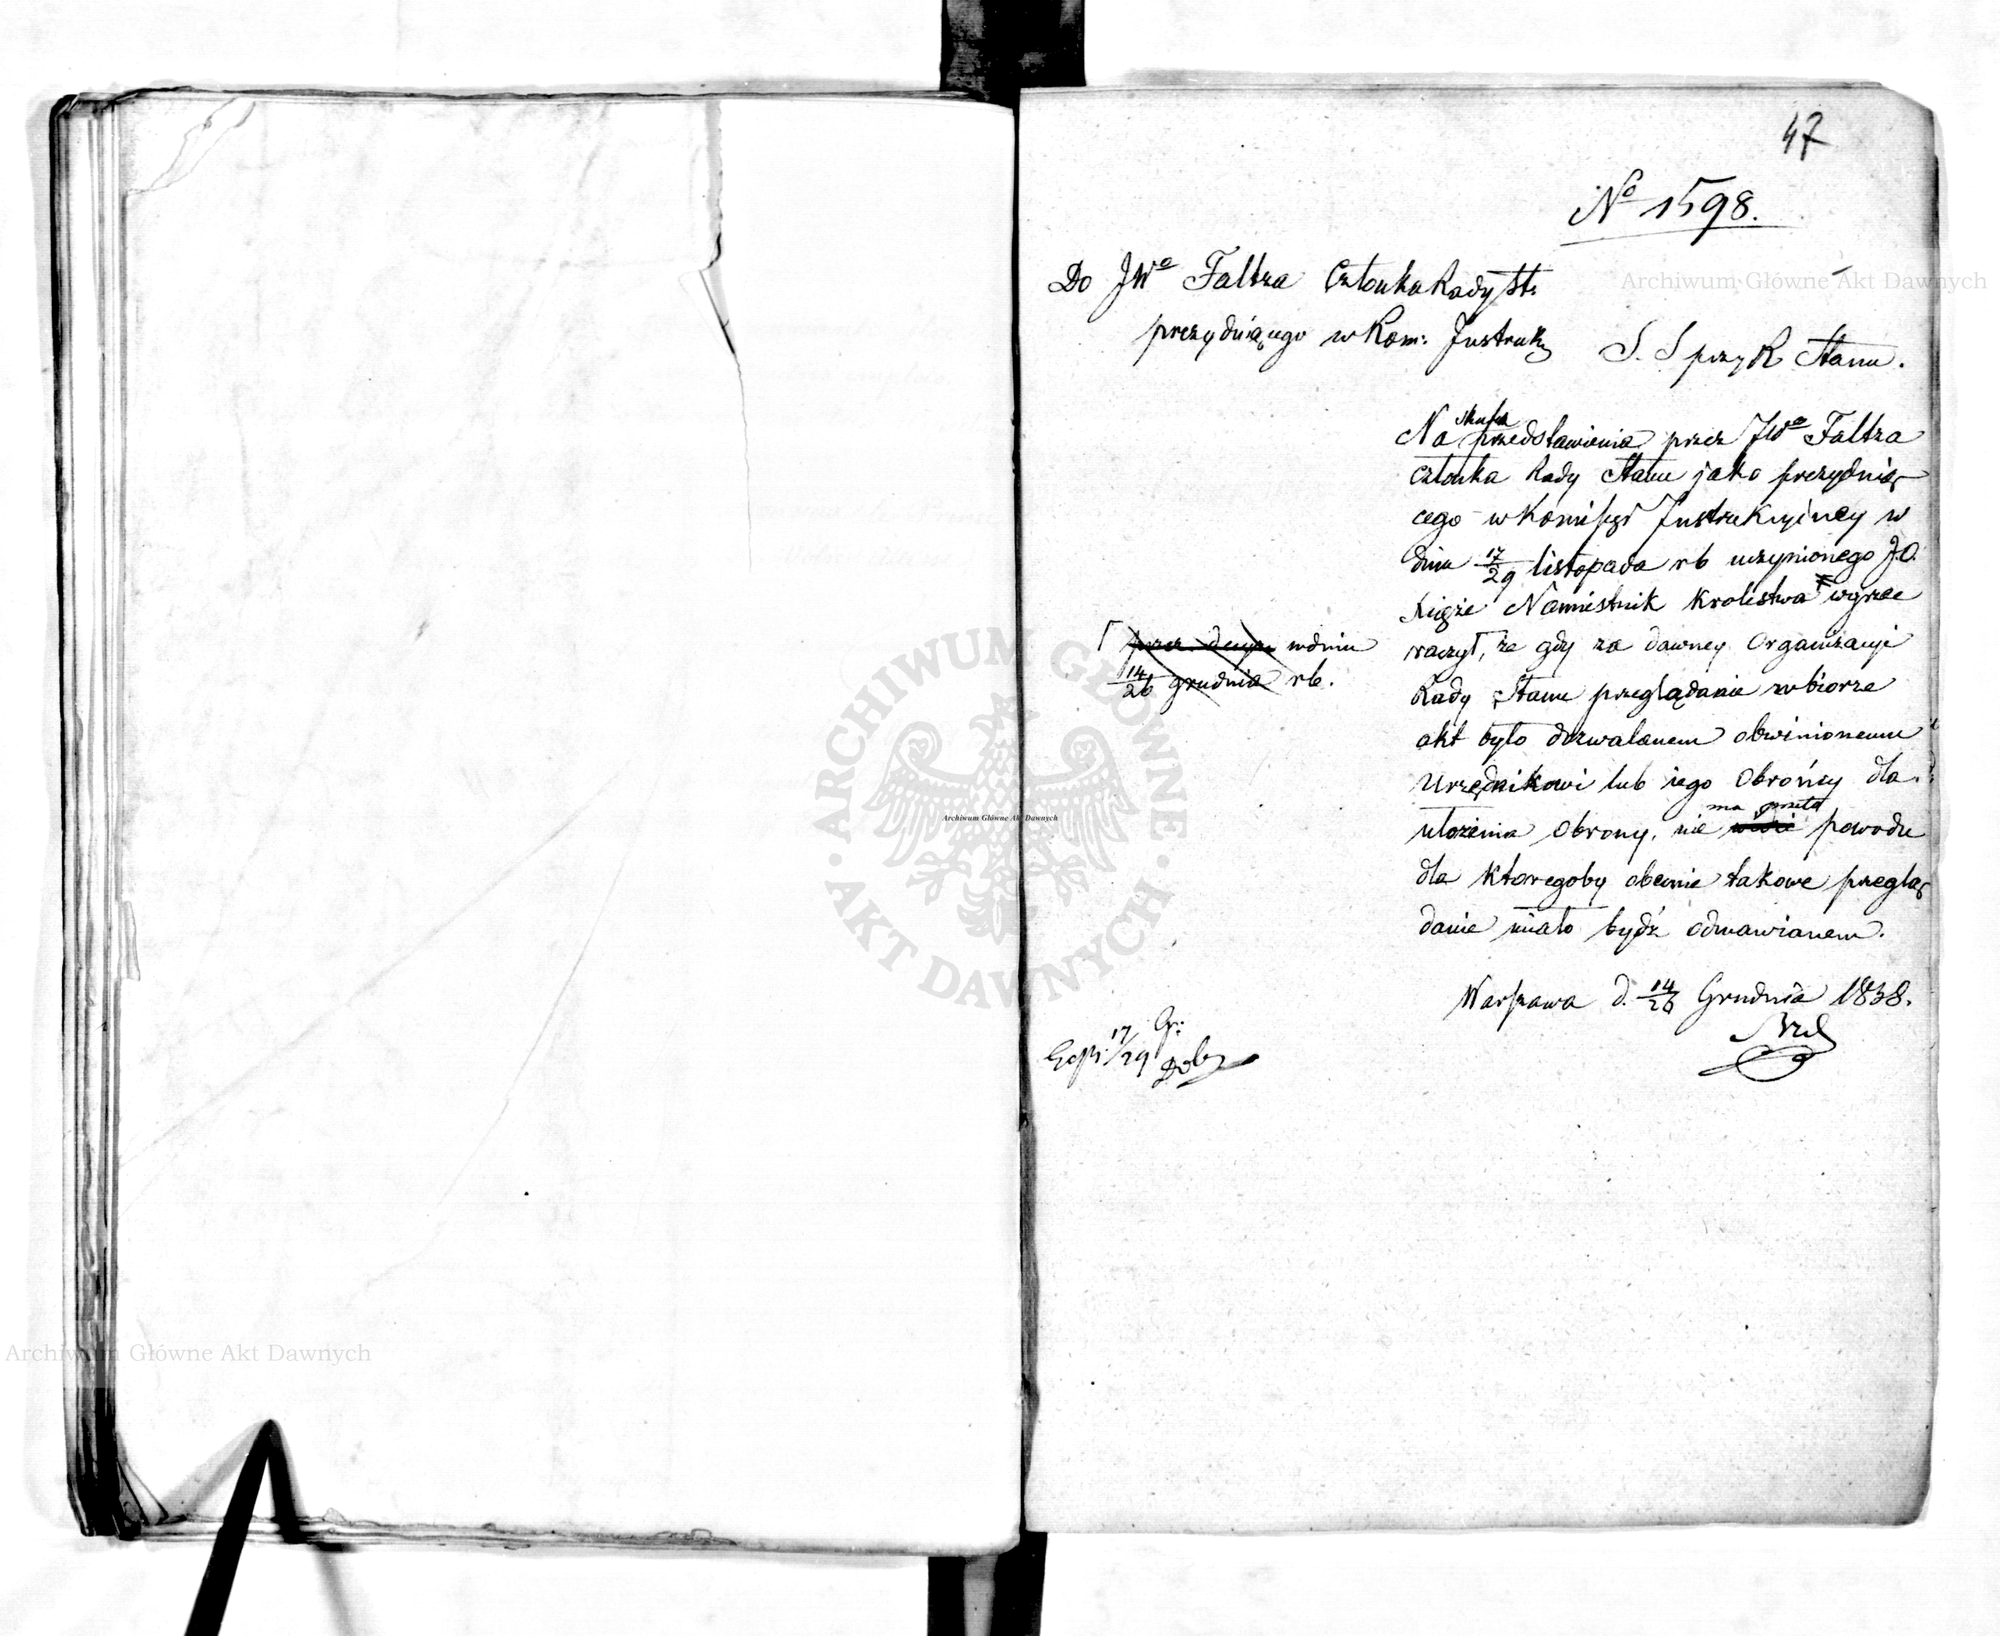 47
No 1598.
Do JWo Faltza Członka Rady St:
prezydującego w Kom: Instrukcy
S. S przy R Stanu.
Na skutek przedstawienia przez JWo Faltza
Członka Rady Stanu jako prezydują
cego w Komissyi Instrukcyiney w
dniu 17/29 listopada rb uczynionego J.O.
Xiąże Namiestnik Krolestwa wyrzec
raczył, że gdy za dawney Organizacyi
Rady Stanu przeglądanie w biorze
akt było dozwalanem obwinionemu
Urzędnikowi lub iego Obrońcy dla
ułożenia Obrony, nie ma przeto powodu
dla ktoregoby obecnie takowe przeglą
danie miało bydź odmawianem.
Warszawa d. 14/26 Grudnia 1838.
w dniu
14/26 grudnia rb.
Exp: 17/29 Gr:
Archiwum Główne Akt Dawnych
Archiwum Główne Akt Dawnych
Archiwum Główne Akt Dawnych
ARCHIWUM GŁÓWNE
AKT DAWNYCH